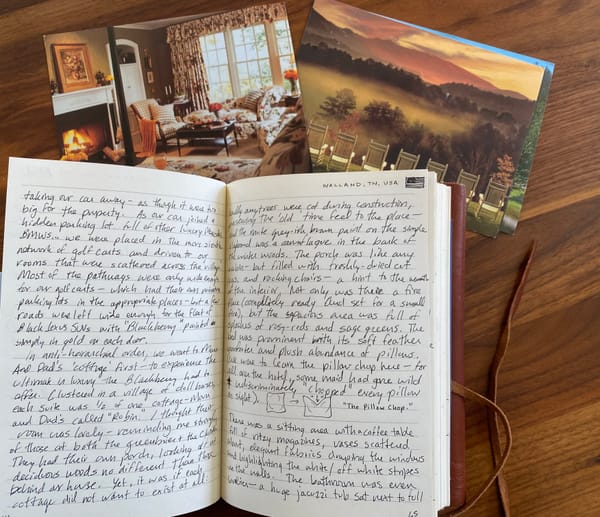 taking our car away - as though it were too
big for the property. As our car joined a
hidden parking lot full of other luxury
BMWs.. we were placed in the
network of golf carts and driven to our
rooms that were scattered across the village.
Most of the pathways were only wide enough
for our golf carts - which had their own
parking lots in the appropriate places - but a few
roads were left wide enough for the fleet of
Black Lexus SUVs with "Blackberry" painted
simply in gold on each door.
In anti-hierarchal order, we went to Mom
And Dad's cottage first - to experience the
ultimate in luxury The Blackberry had to
offer. Clustered in a village of small houses,
each suite was ½ of one cottage - Mom
and Dad's called "Robin". I thought their
room was lovely - reminding me strongly
of those at both the
They had their own porch, looking out at
deciduous woods no different than those
behind our house. Yet, it was if each
cottage did not want to exist at all.
WALLAND, TN, USA
trees were cut during construction,
the old time feel to the place -
and the mute greyish brown paint on the simple
clapboard was a camouflague in the bark of
the winter woods. The porch was like any
- but filled with freshly-dried cut
and rocking chairs - a hint to the
of the interior. Not only was there a fire
place (completely ready and set for a small
fire), but the spacious area was full of
splashes of rosy-reds and sage greens. The
bed was prominent with its soft feather
and plush abundance of pillows.
was to learn the pillow chop here - for
all over the hotel, some maid had gone wild
indiscriminately "chopped" every pillow
in sight).
"The Pillow Chop."
There was a sitting area with a coffee table
full of ritzy magazines, vases scattered
about, elegant fabrics draping the windows
and highlighting the white/off white stripes
on the walls. The bathroom was even
- a huge jacuzzi tub sat next to full